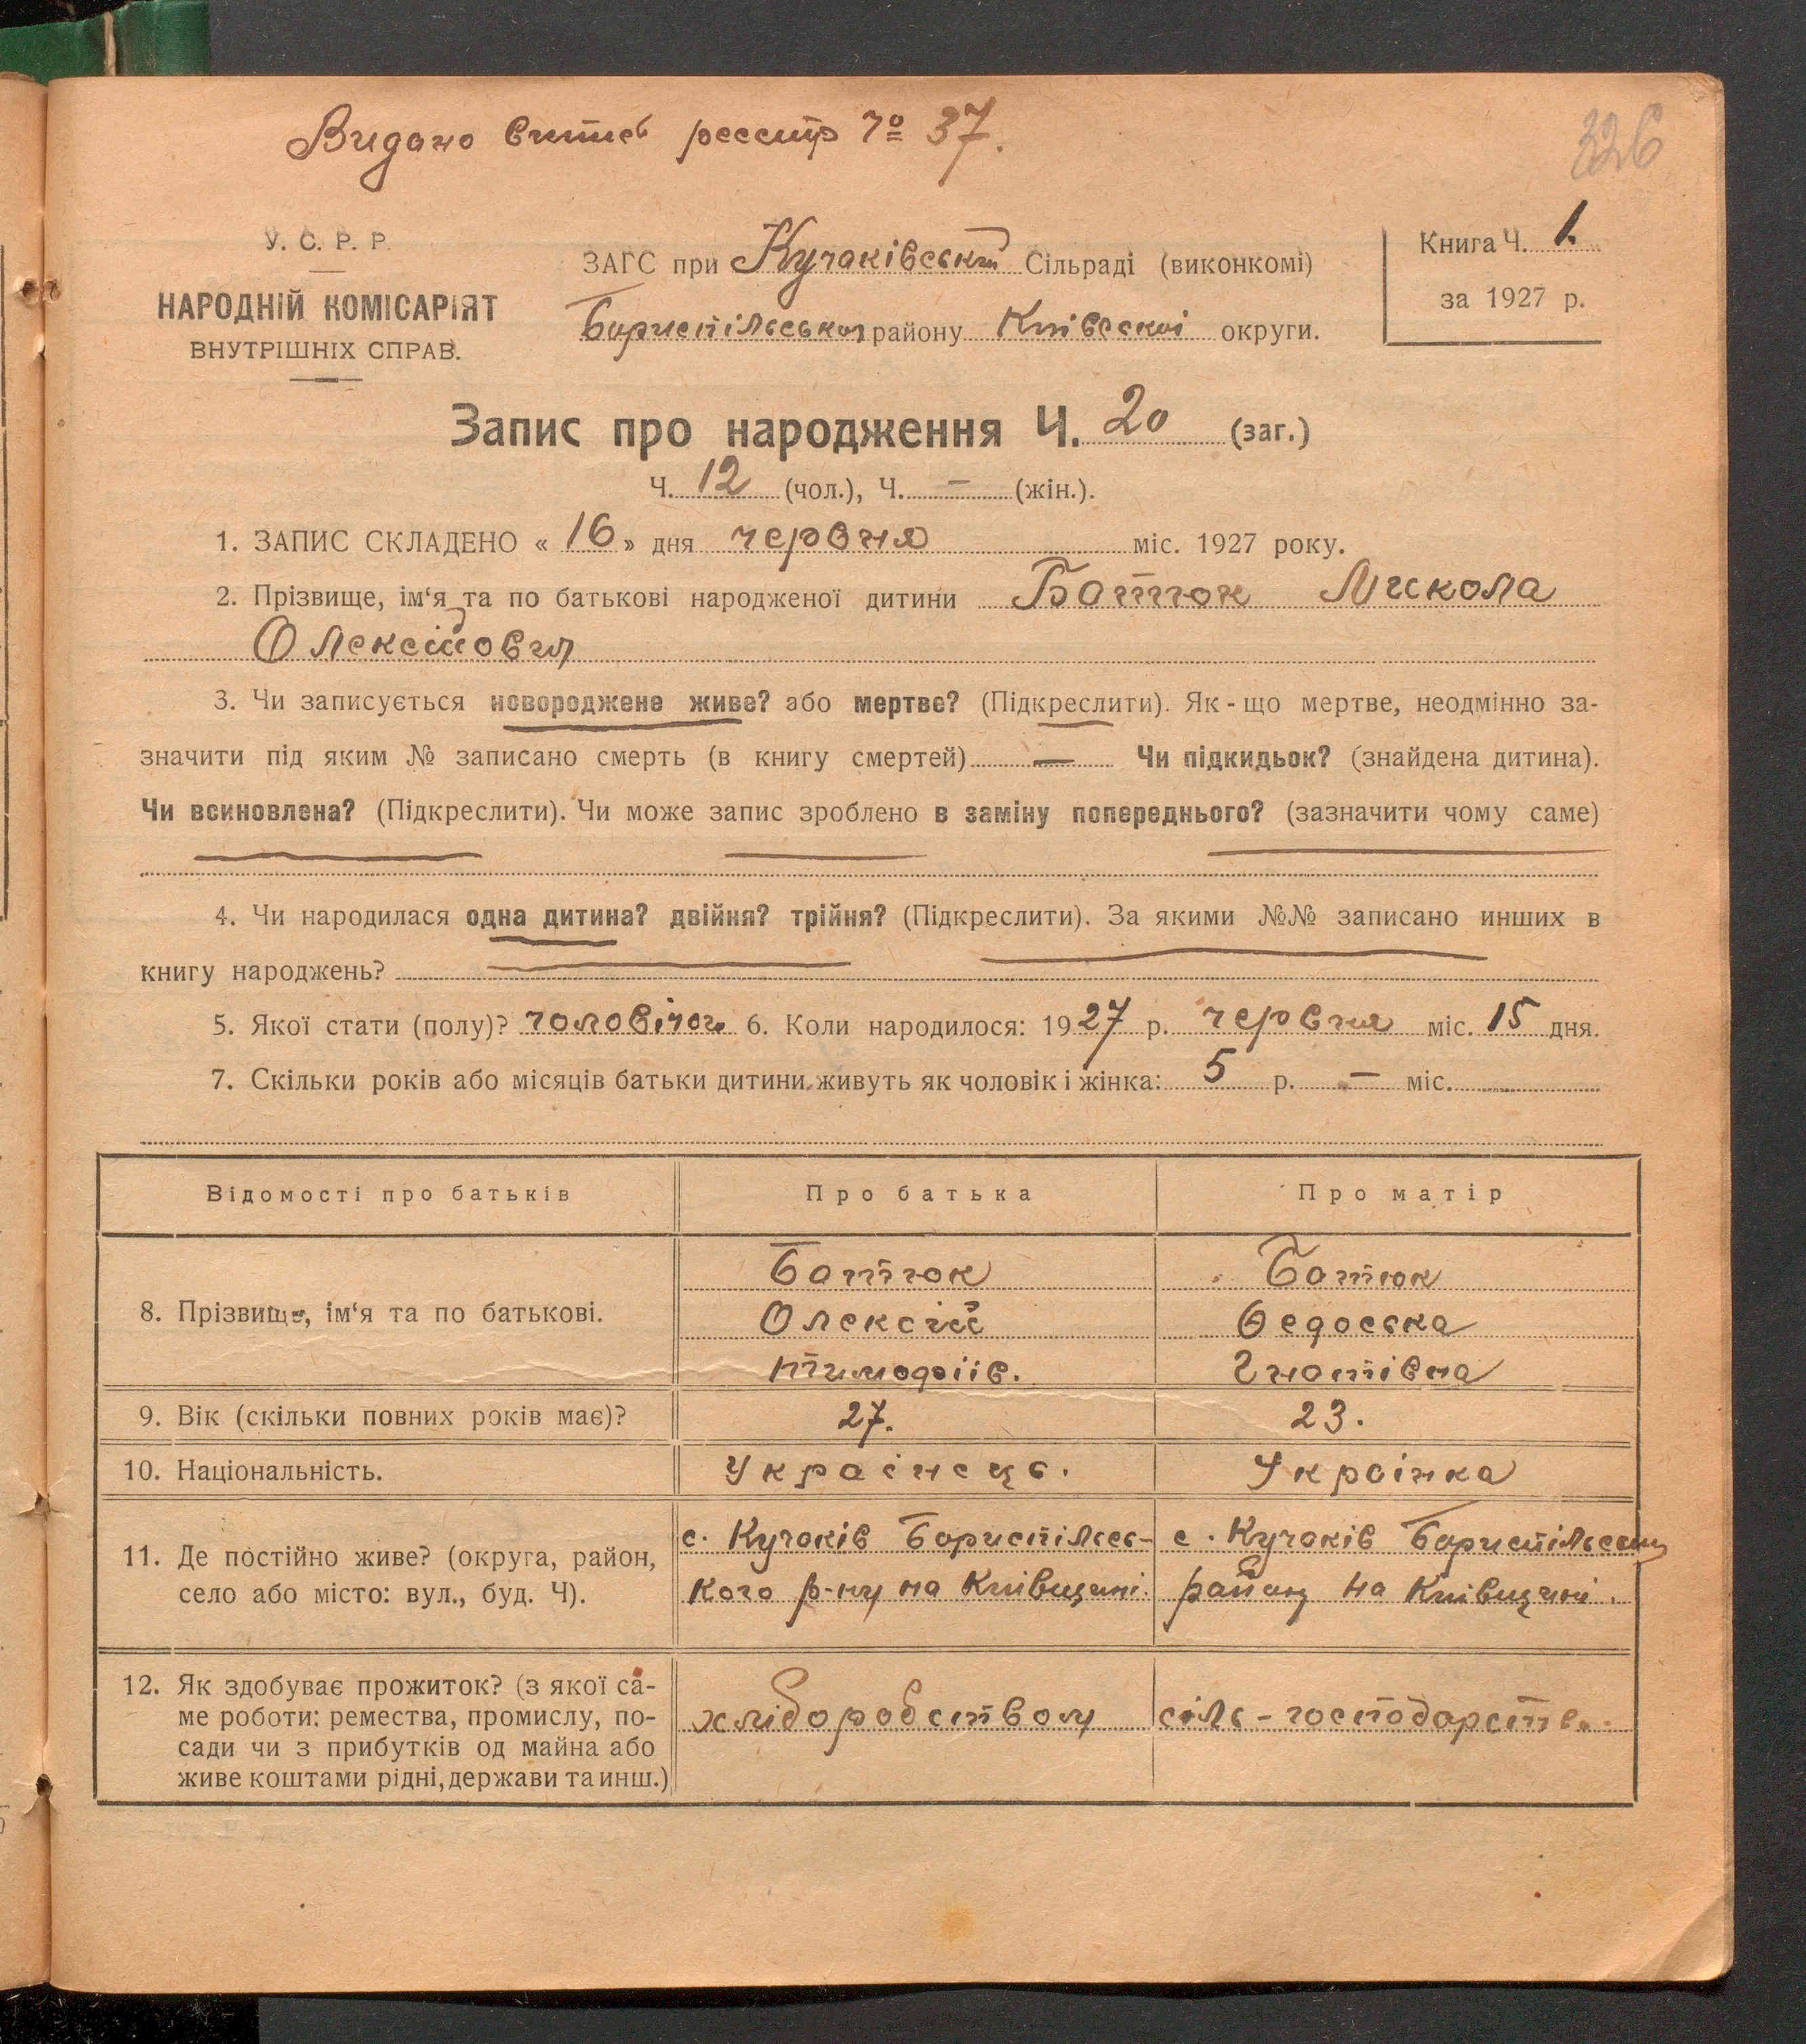 Видано витись реєстр № 37.
326
У. С. Р. Р.
НАРОДНІЙ КОМІСАРІЯТ
ВНУТРІШНІХ СПРАВ.
ЗАГС при Кучаківській Сільраді (виконкомі)
Бориспільського району Київської округи.
Книга Ч. 1.
за 1927 р.
Запис про народження Ч. 20 (заг.)
Ч. 12 (чол.), Ч. — (жін.).
1. ЗАПИС СКЛАДЕНО « 16 » дня червня міс. 1927 року.
2. Прізвище, ім‘я та по батькові народженої дитини Батюк Микола
Олексійович
3. Чи записується новороджене живе? або мертве? (Підкреслити). Як-що мертве, неодмінно за-
значити під яким № записано смерть (в книгу смертей) — Чи підкидьок? (знайдена дитина).
Чи всиновлена? (Підкреслити). Чи може запис зроблено в заміну попереднього? (зазначити чому саме)
4. Чи народилася одна дитина? двійня? трійня? (Підкреслити). За якими №№ записано инших в
книгу народжень?
5. Якої стати (полу)? чоловічої 6. Коли народилося: 1927 р. червня міс. 15 дня.
7. Скільки років або місяців батьки дитини живуть як чоловік і жінка: 5 р. — міс.
Відомості про батьків Про батька Про матір
8. Прізвище, ім‘я та по батькові.
Батюк
Олексій
Тимофіїв.
Батюк
Федоська
Гнатівна
9. Вік (скільки повних років має)? 27. 23.
10. Національність. Українець. Українка
11. Де постійно живе? (округа, район,
село або місто: вул., буд. Ч).
с. Кучаків Бориспільсь-
кого р-ну на Київщині.
с. Кучаків Бориспільськ
району на Київщині.
12. Як здобуває прожиток? (з якої са-
ме роботи: ремества, промислу, по-
сади чи з прибутків од майна або
живе коштами рідні, держави та инш.)
хліборобством
сіль-господарств.